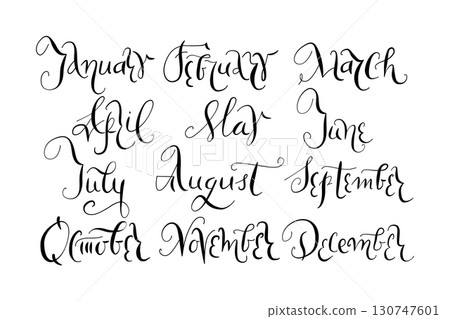 January February March
April May June
July August September
October November December
130747601